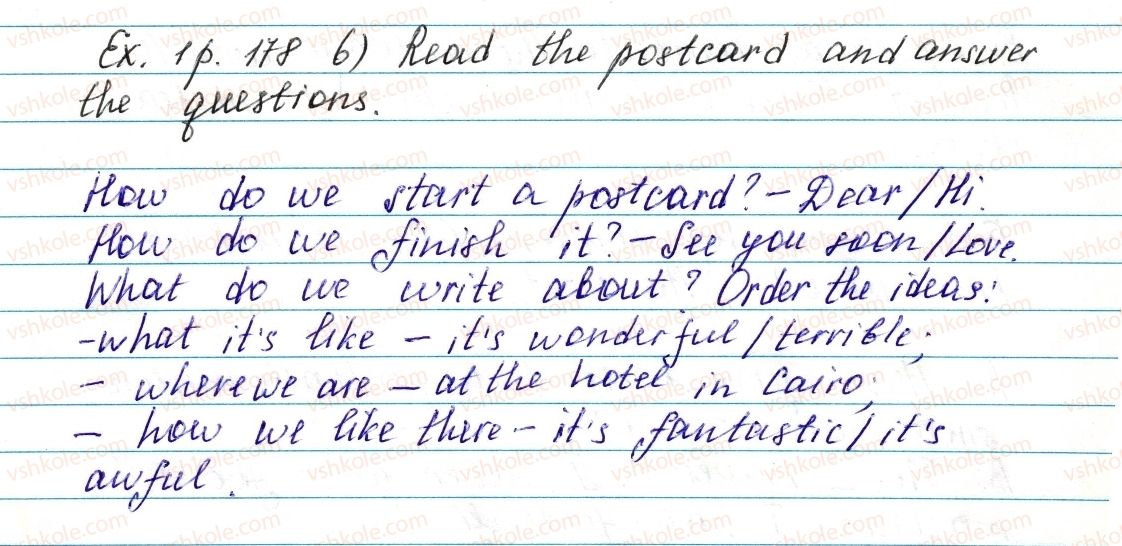 Ex. 1 p. 178 б) Read the postcard and answer
the questions.
How do we start a postcard? - Dear / Hi.
How do we finish it? - See you soon / Love.
What do we write about? Order the ideas:
- what it's like - it's wonderful / terrible;
- where we are - at the hotel in Cairo;
- how we like there - it's fantastic / it's
awful.